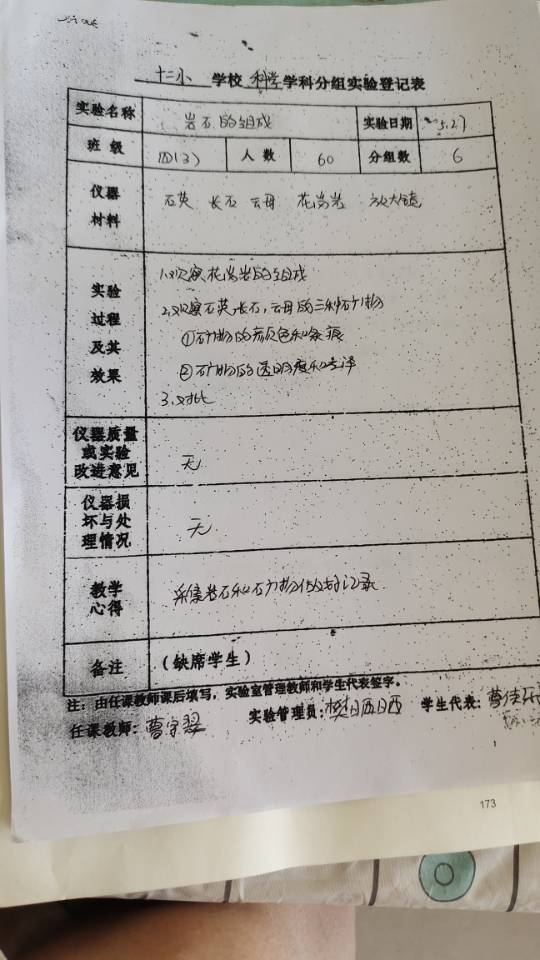 十二小 学校 科学 学科分组实验登记表
实验名称 岩石的组成 实验日期 5.27
班 级 四(3) 人 数 60 分组数 6
仪器
材料
石英 长石 云母 花岗岩 放大镜
实验
过程
及其
效果
1.观察花岗岩的组成
2.观察石英,长石,云母的三种矿物
①矿物的颜色和条痕
②矿物的透明度和光泽
3.对比
仪器质量
或实验
改进意见
无
仪器损
坏与处
理情况
无
教学
心得
采集岩石和矿物做好记录
备注 (缺席学生)
注:由任课教师课后填写,实验室管理教师和学生代表签字。
任课教师:曹守翠 实验管理员: 学生代表:
173